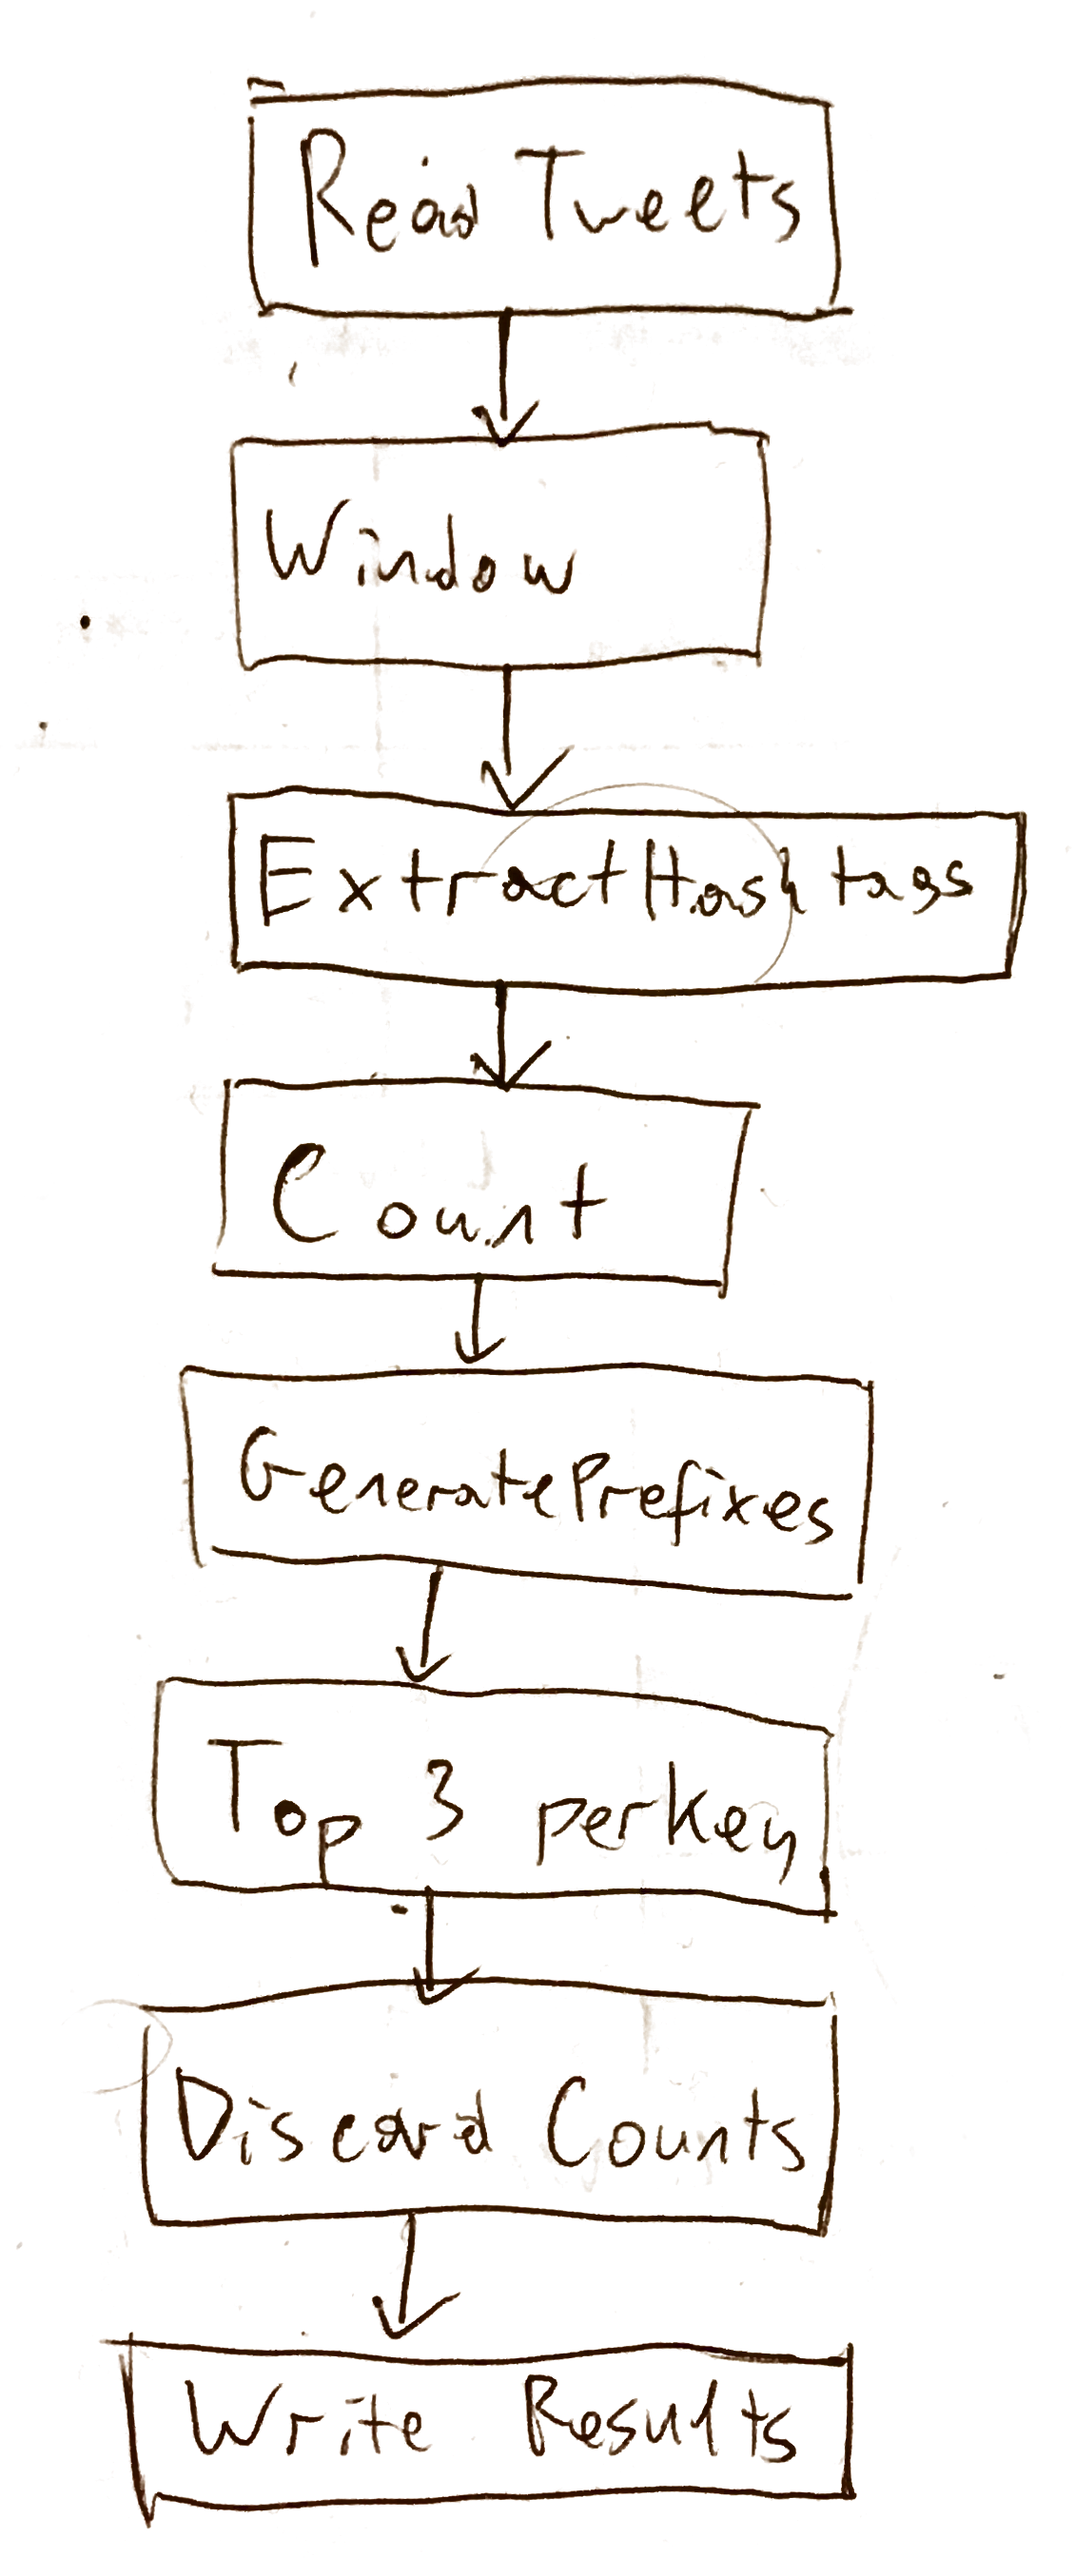 Read Tweets
Window
ExtractHashtags
Count
GeneratePrefixes
Top 3 perKey
Discard Counts
Write Results